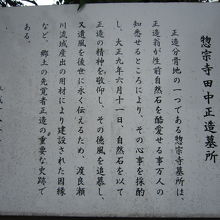 惣宗寺田中正造墓所
正造分骨地の一つである惣宗寺墓所は
正造翁が生前自然石を酷愛せる事万人の
知悉せるところにより、その心事を採酌
し、大正九年六月十一日、自然石を以て
正造の精神を敬仰し、その徳風を追慕し、
又遺風を後世に永く伝えるため、渡良瀬
川流域産出の用材により建設された因縁
など、郷土の先覚者正造の重要な史跡で
ある。